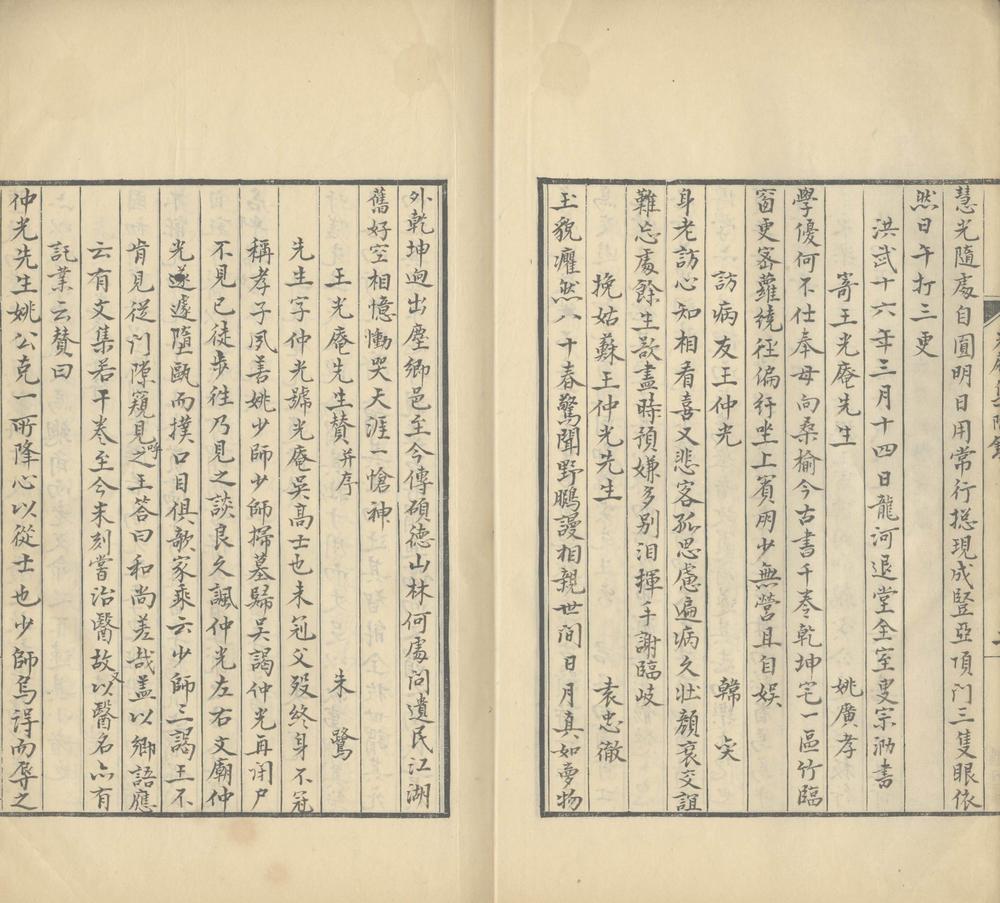 慧光隨處自圓明日用常行揔現成豎亞頂門三隻眼依
然日午打三更
洪武十六年三月十四日龍河退堂全室叟宗泐書
寄王光庵先生　姚廣孝
學優何不仕奉母向桑榆今古書千卷乾坤宅一區竹臨
窗更密蘿繞徑偏紆坐上賓朋少無營且自娱
訪病友王仲光　韓奕
身老訪心知相看喜又悲客孤思慮遍病久壯顏衰交誼
難忘處餘生欲盡時預嫌多別泪揮手謝臨岐
挽姑蘇王仲光先生　袁忠徹
玉貌癯然八十春驚聞野鵩謾相親世間日月真如夢物
外乾坤迥出塵鄉邑至今傳碩德山林何處問遺民江湖
舊好空相憶慟哭天涯一愴神
王光庵先生贊并序　朱鷺
先生字仲光號光庵吳高士也未冠父歿終身不冠
稱孝子夙善姚少師少師掃墓歸吳謁仲光再閉户
不見已徒步往乃見之談良久諷仲光左右文廟仲
光遂遽墮甌而撲口目俱欹家乘云少師三謁王不
肯見從門隙窺見呼之王答曰和尚差哉盖以鄉語應
云有文集若干卷至今未刻嘗治醫故又以醫名亦有
託業云贊曰
仲光先生姚公克一所降心以從士也少師烏得而辱之